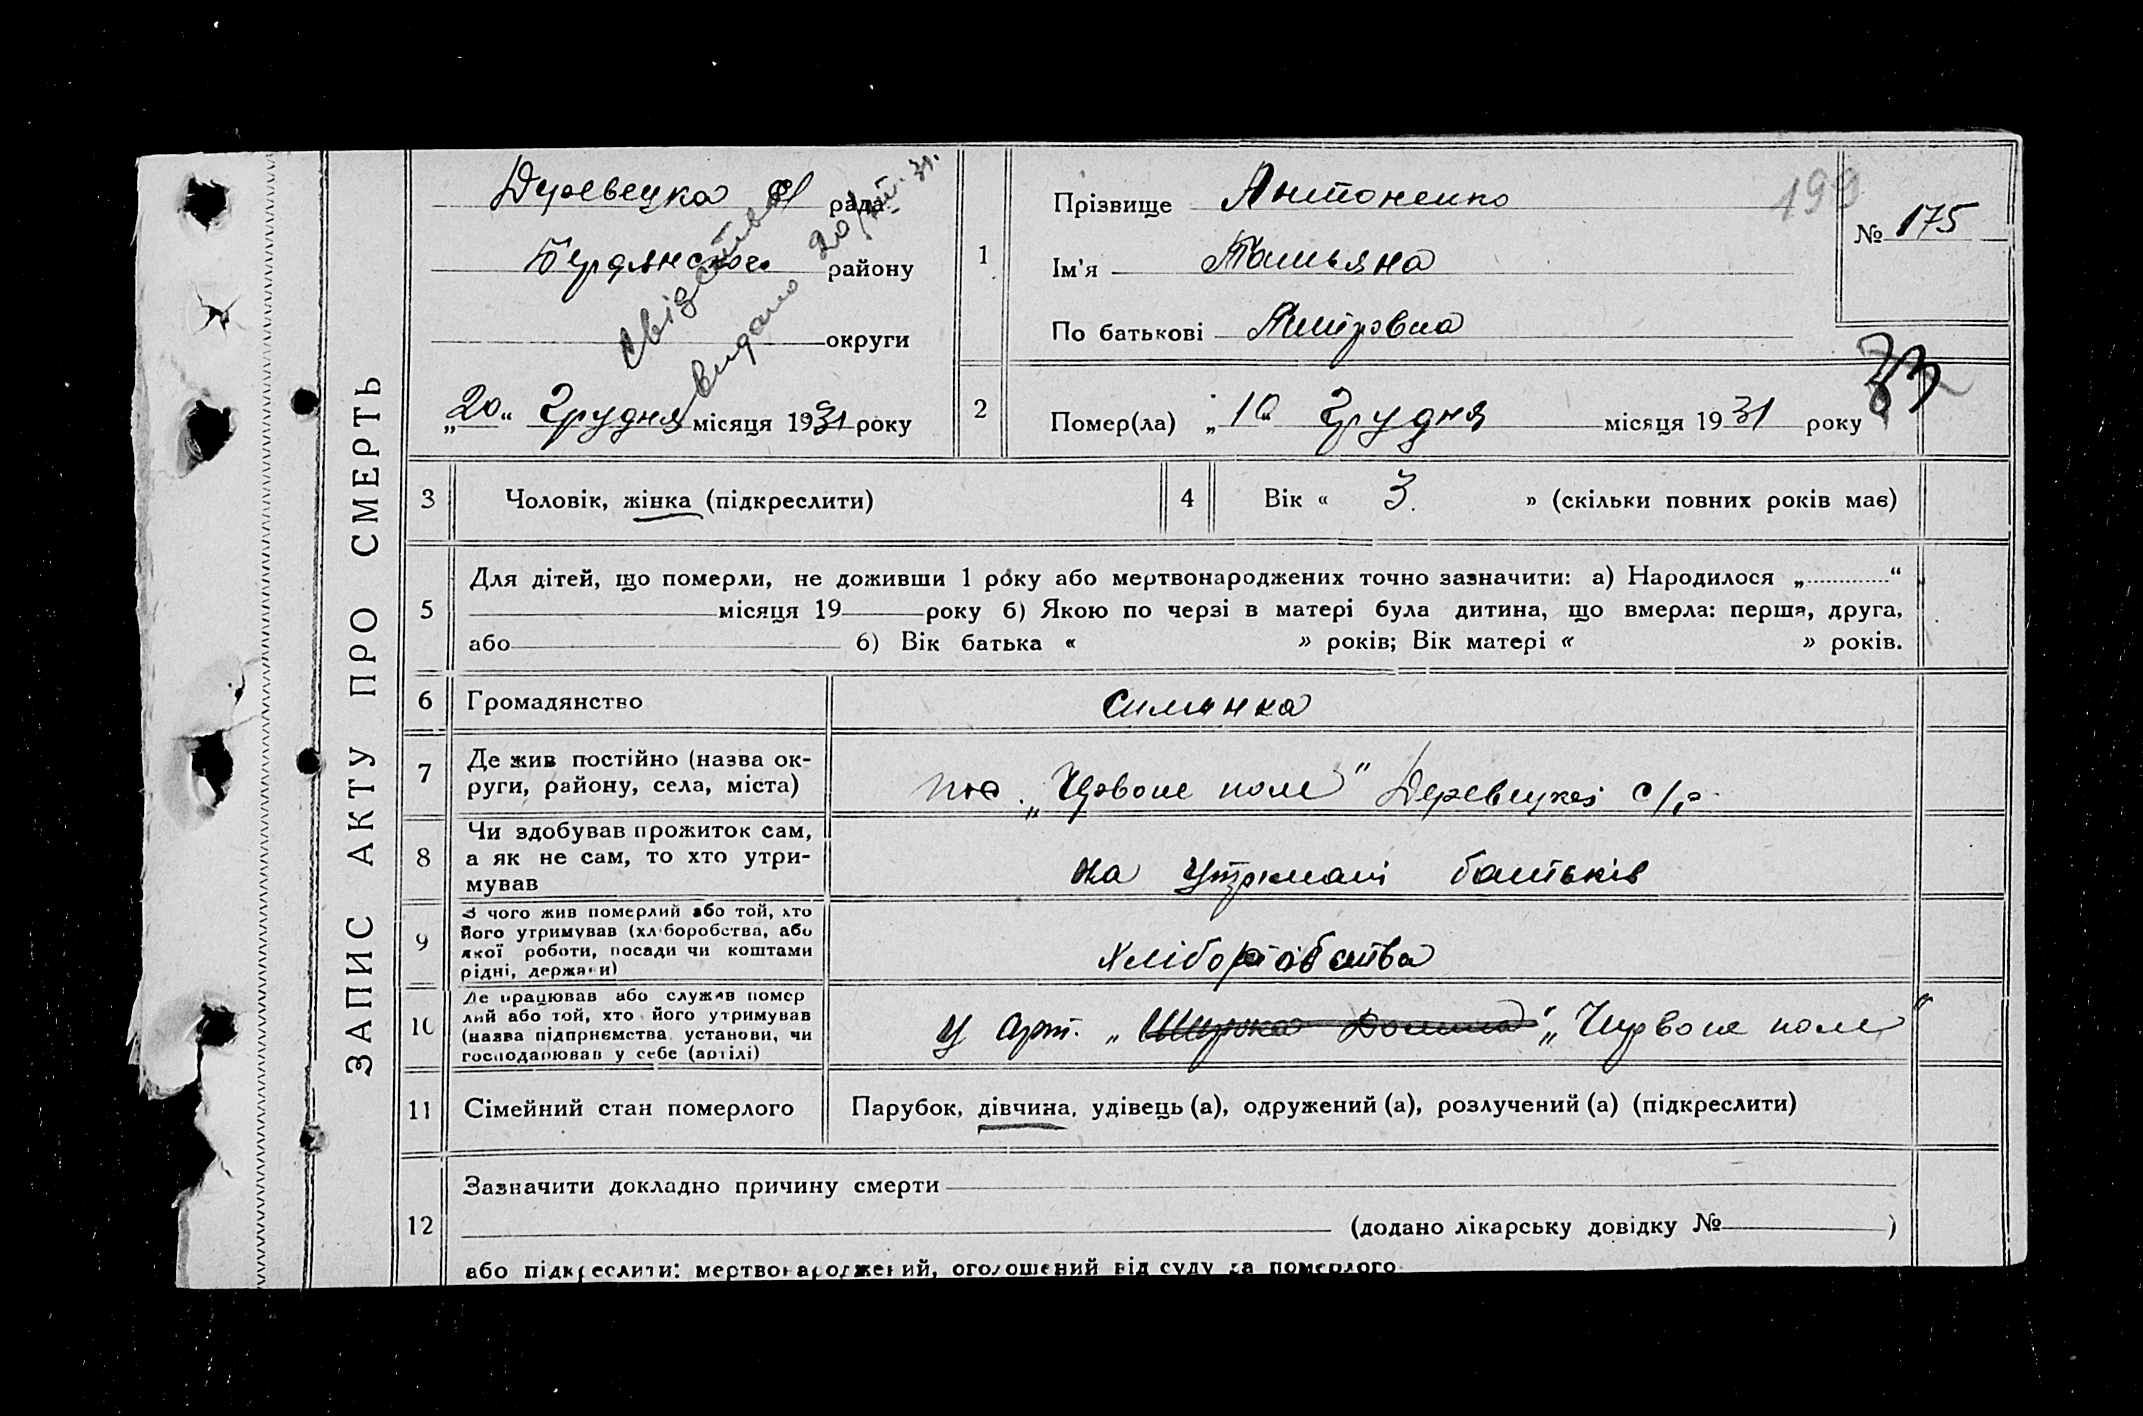 ЗАПИС АКТУ ПРО СМЕРТЬ
Деревецка с/ рада
Бердянского району
округи
„20“ Грудня місяця 1931 року
свідотцтво
видано 20/XII 31.
1
Прізвище Антоненко
Ім'я Татьяна
По батькові
199
№ 175
2
Помер(ла) „10 Грудня місяця 1931 року
33
3 Чоловік, жінка (підкреслити)
4 Вік « 3. » (скільки повних років має)
5
Для дітей, що померли, не доживши 1 року або мертвонароджених точно зазначити: а) Народилося „ “
місяця 19 року б) Якою по черзі в матері була дитина, що вмерла: перша, друга,
або б) Вік батька « » років; Вік матері « » років.
6 Громадянство селянка
7 Де жив постійно (назва ок-
руги, району, села, міста)
пос. „Червоне поле“ Деревецкої с/р
8 Чи здобував прожиток сам,
а як не сам, то хто утри-
мував
на утрімані батьків
9 З чого жив померлий або той, хто
його утримував (хліборобства, або
якої роботи, посади чи коштами
рідні, держави)
хліборобства
10 Де працював або служив помер
лий або той, хто його утримував
(назва підприємства установи, чи
господарював у себе (артілі)
у арт. „Широка Долина“ „Червоне поле“
11 Сімейний стан померлого
Парубок, дівчина, удівець (а), одружений (а), розлучений (а) (підкреслити)
12
Зазначити докладно причину смерти
(додано лікарську довідку № )
або підкреслити: мертвонароджений, оголошений від суду за померлого